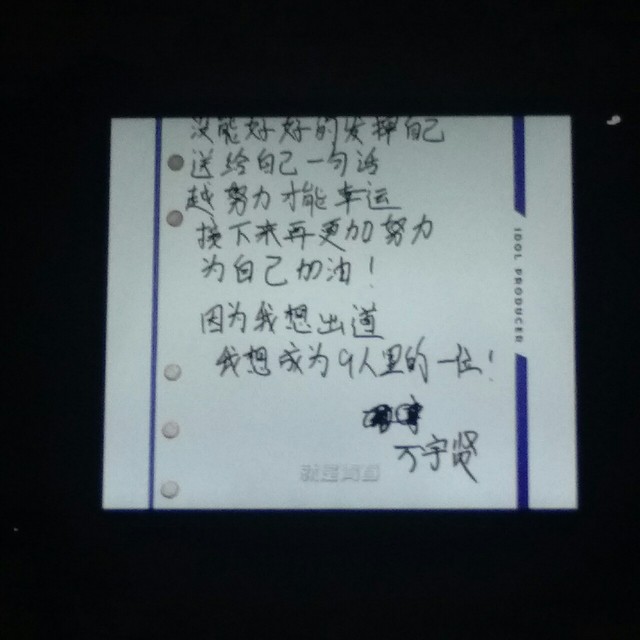 没能好好的发挥自己
送给自己一句话
越努力才能幸运
接下来再更加努力
为自己加油！
因为我想出道
我想成为9人里的一位！
万宇贤
IDOL PRODUCER